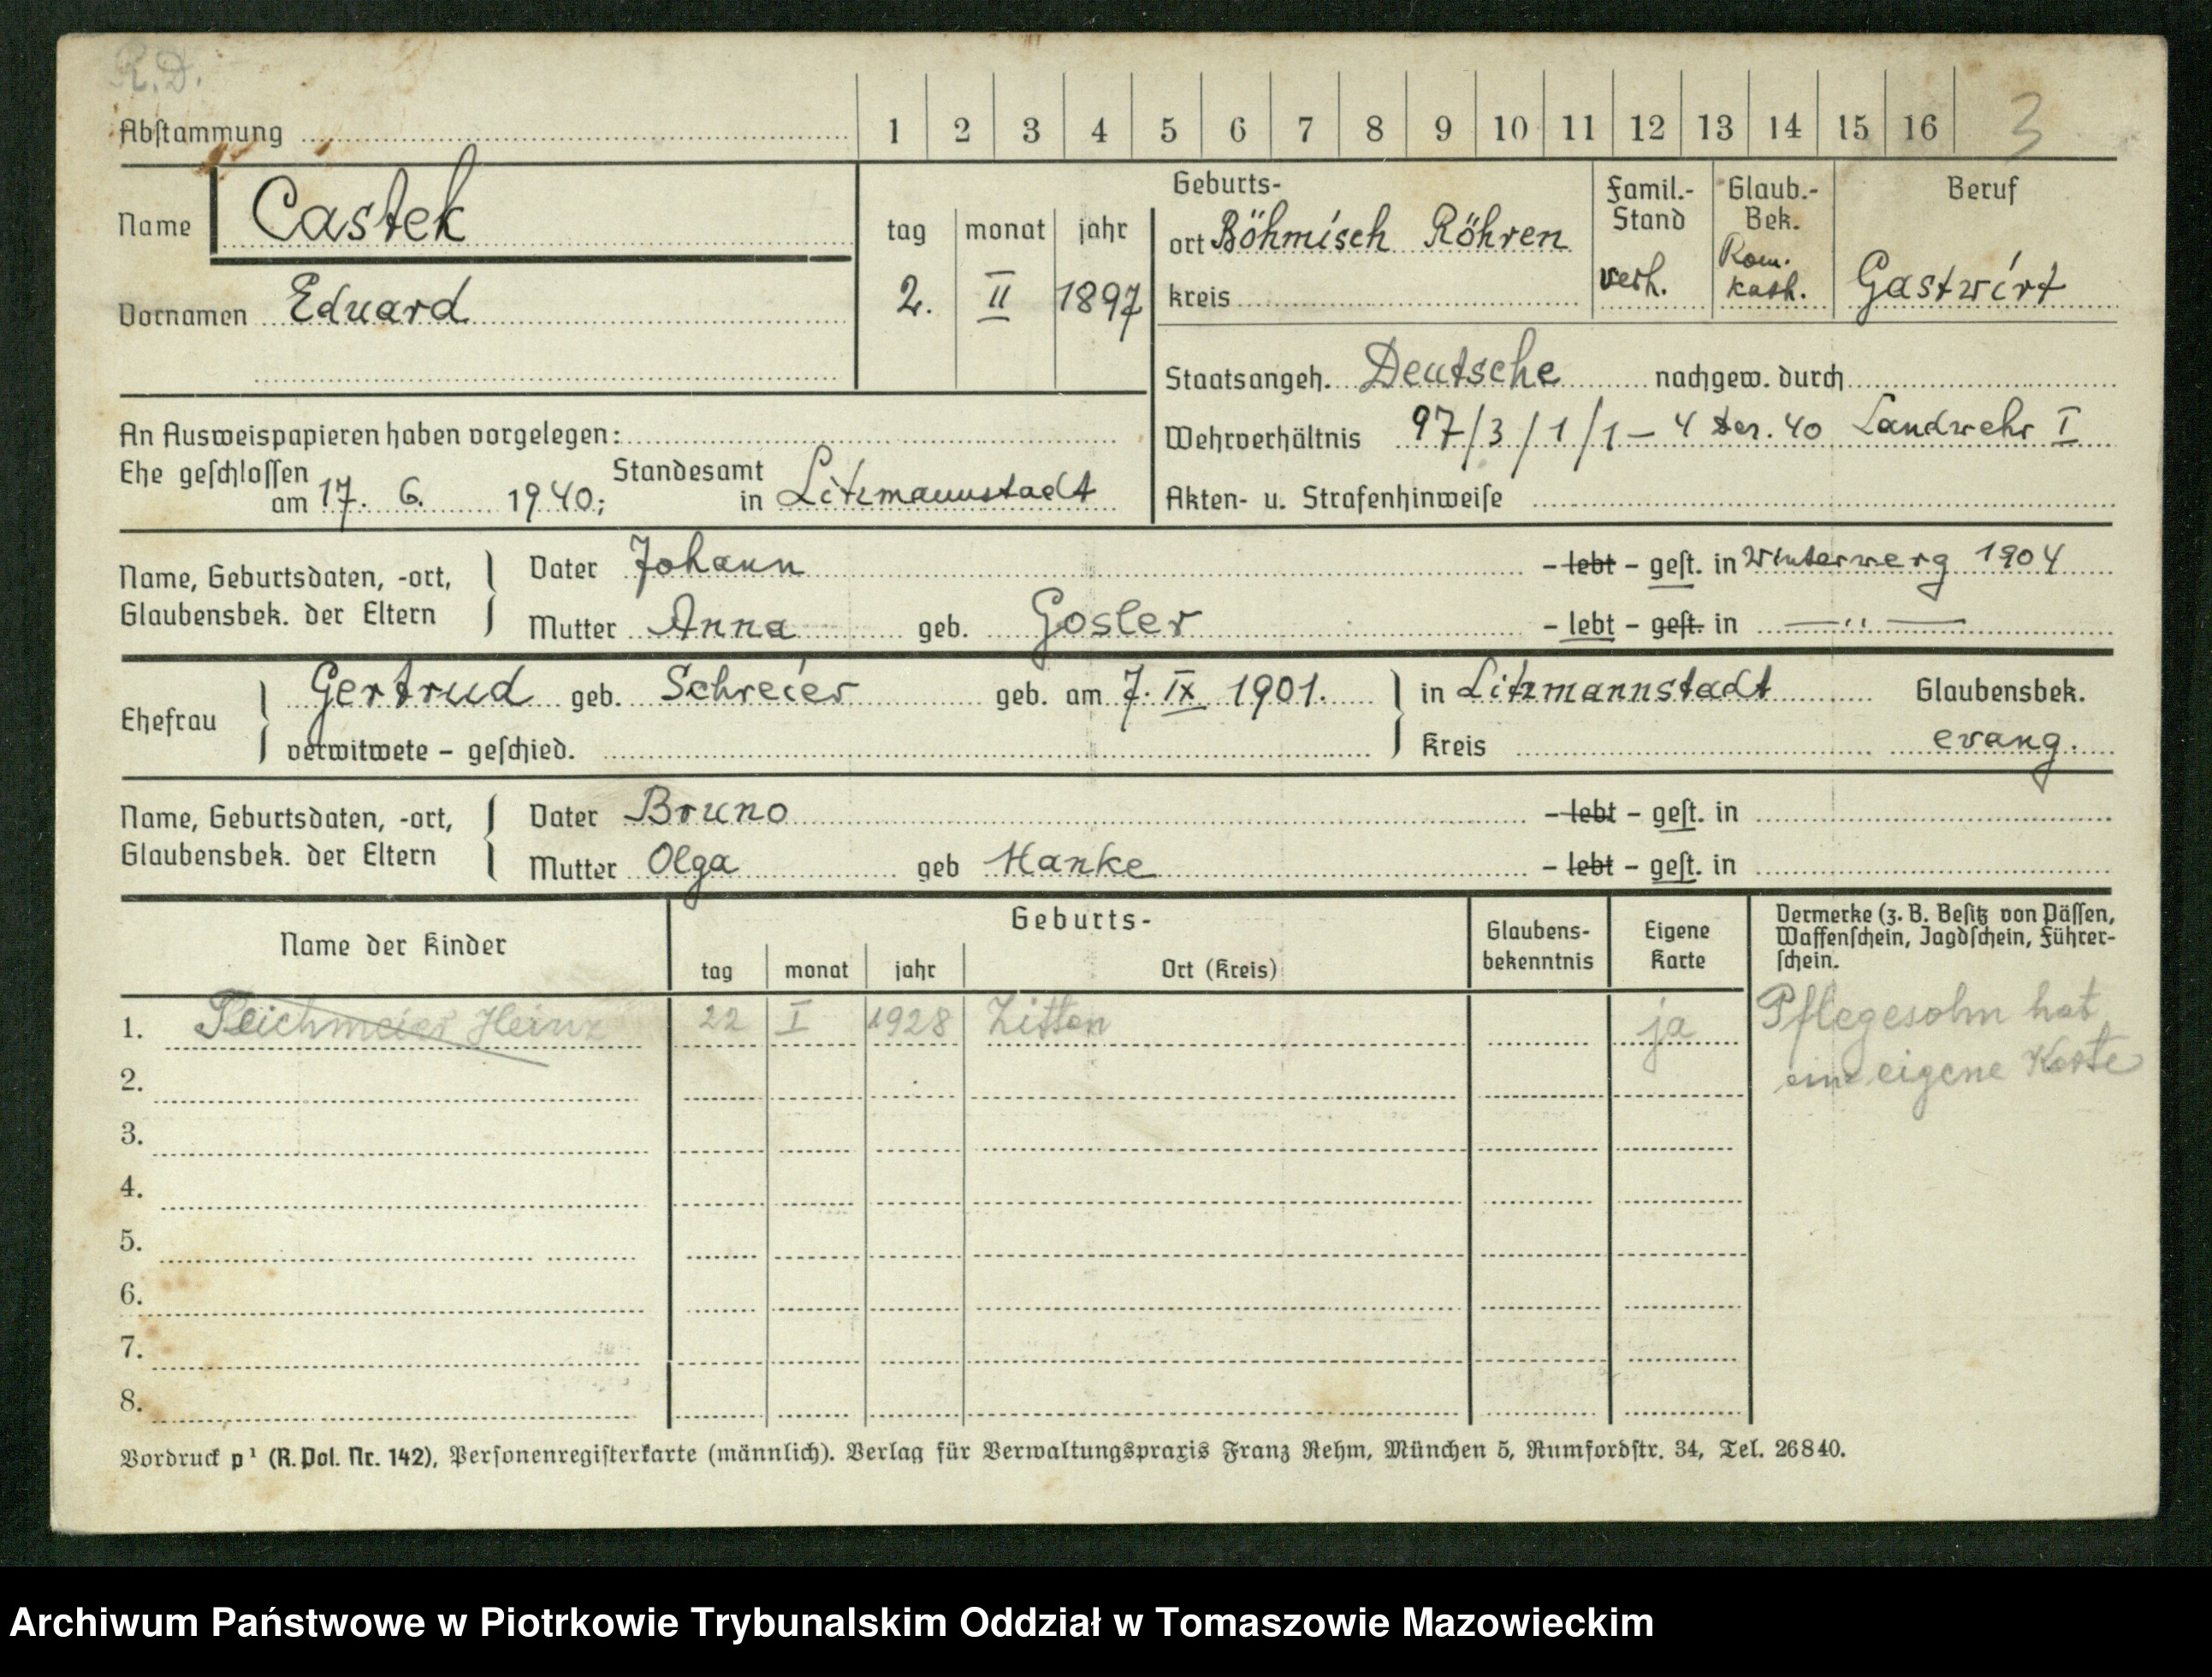 R.D.
Abstammung 1 2 3 4 5 6 7 8 9 10 11 12 13 14 15 16 3
Name Castek
Vornamen Eduard
tag monat jahr
2. II 1897
Geburts-
ort Böhmisch Röhren
Kreis
Famil.-
Stand
verh.
Glaub.-
Bek.
Rom.
kath.
Beruf
Gastwirt
Staatsangeh. Deutsche nachgew. durch
Wehrverhältnis 97/3/1/1 – 4 Der. 40 Landwehr I
Akten- u. Strafenhinweise
An Ausweispapieren haben vorgelegen:
Ehe geschlossen
am 17. 6. 1940; Standesamt
in Litzmannstadt
Name, Geburtsdaten, -ort,
Glaubensbek. der Eltern
Vater Johann – lebt – gest. in Winterwerg 1904
Mutter Anna geb. Gosler – lebt – gest. in — ,, —
Ehefrau Gertrud geb. Schreier geb. am 7. IX 1901. in Litzmannstadt Glaubensbek.
verwitwete – geschied. Kreis evang.
Name, Geburtsdaten, -ort,
Glaubensbek. der Eltern
Vater Bruno – lebt – gest. in
Mutter Olga geb Hanke – lebt – gest. in
Name der Kinder
Geburts-
tag monat jahr Ort (Kreis)
Glaubens-
bekenntnis
Eigene
Karte
Vermerke (z. B. Besitz von Pässen,
Waffenschein, Jagdschein, Führer-
schein.
1. Heinz 22 I 1928 ja
Pflegesohn hat
eine eigene Karte
2.
3.
4.
5.
6.
7.
8.
Vordruck p¹ (R. Pol. Nr. 142), Personenregisterkarte (männlich). Verlag für Verwaltungspraxis Franz Rehm, München 5, Rumfordstr. 34, Tel. 26840.
Archiwum Państwowe w Piotrkowie Trybunalskim Oddział w Tomaszowie Mazowieckim